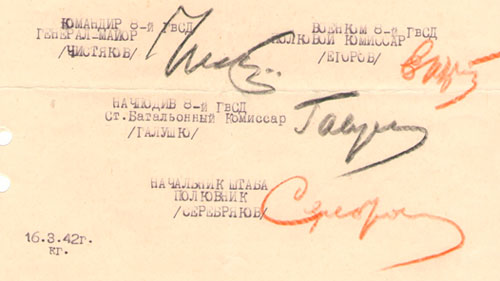 КОМАНДИР 8-й ГВСД
ГЕНЕРАЛ-МАЙОР
/ЧИСТЯКОВ/
ВОЕНКОМ 8-й ГВСД
ПОЛКОВОЙ КОМИССАР
/ЕГОРОВ/
НАЧПОДИВ 8-й ГВСД
Ст.Батальонный Комиссар
/ГАЛУШКО/
НАЧАЛЬНИК ШТАБА
ПОЛКОВНИК
/СЕРЕБРЯКОВ/
16.3.42г.
кг.